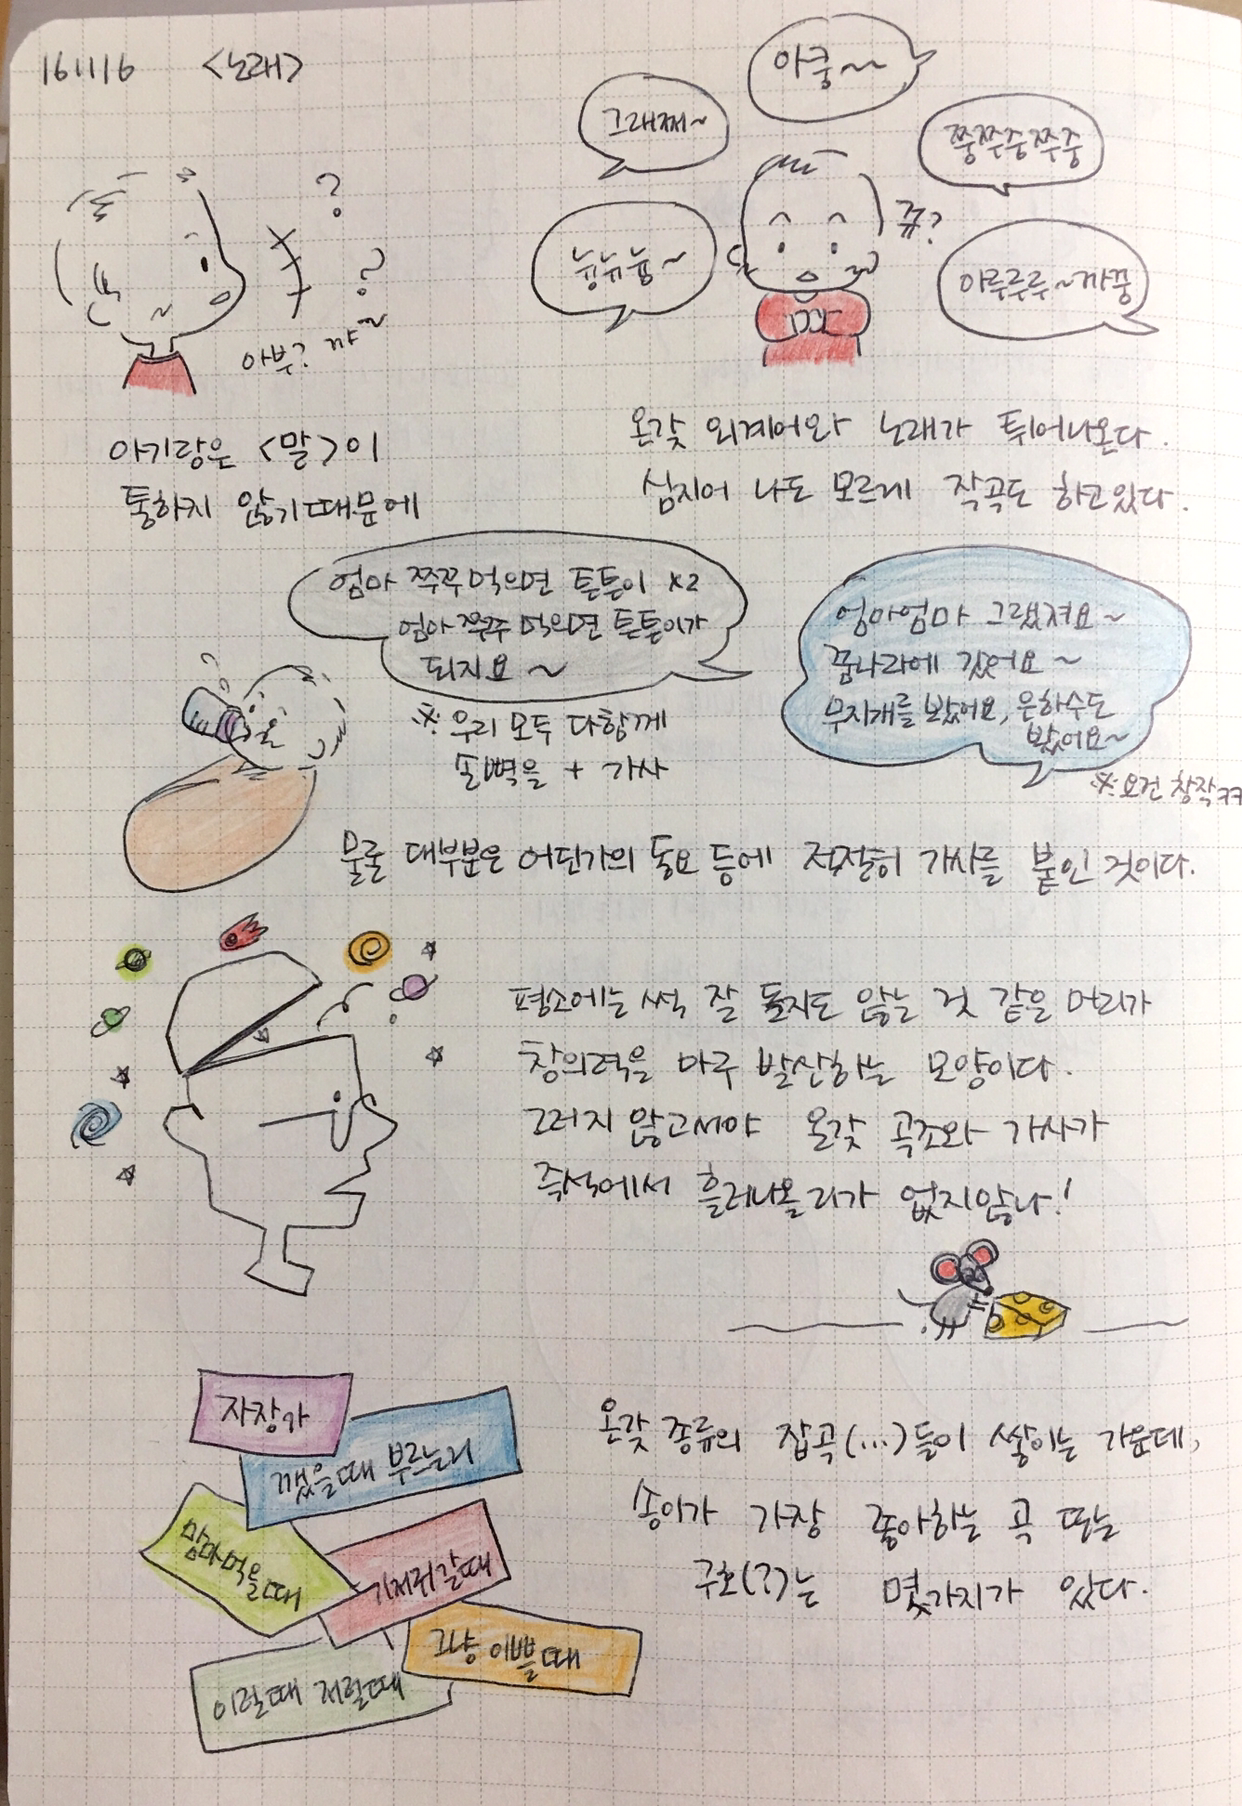 161116 <노래>
?
?
아부? 꺄~
아기랑은 <말>이
통하지 않기 때문에
아쿵~~
그래쪄~
쭝쭈중쭈중
뉴뉴늉~
쮸?
아루루루~까꿍
온갖 외계어와 노래가 튀어나온다.
심지어 나도 모르게 작곡도 하고있다.
엄마 쭈꾸 먹으면 튼튼이 x2
엄마 쭈쭈 먹으면 튼튼이가
되지요~
※ 우리 모두 다함께
손뼉을 + 가사
엄마엄마 그랬져요~
꿈나라에 갔어요~
무지개를 봤어요, 은하수도
봤어요~
※요건 창작ㅋㅋ
물론 대부분은 어딘가의 동요 등에 적절히 가사를 붙인 것이다.
평소에는 썩 잘 돌지도 않는 것 같은 머리가
창의력을 마구 발산하는 모양이다.
그러지 않고서야 온갖 곡조와 가사가
즉석에서 흘러나올리가 없지않나!
자장가
깼을때 부르는거
맘마먹을때
기저귀갈때
그냥 이쁠때
이럴때 저럴때
온갖 종류의 잡곡(...)들이 쌓이는 가운데,
송이가 가장 좋아하는 곡 또는
구호(?)는 몇가지가 있다.